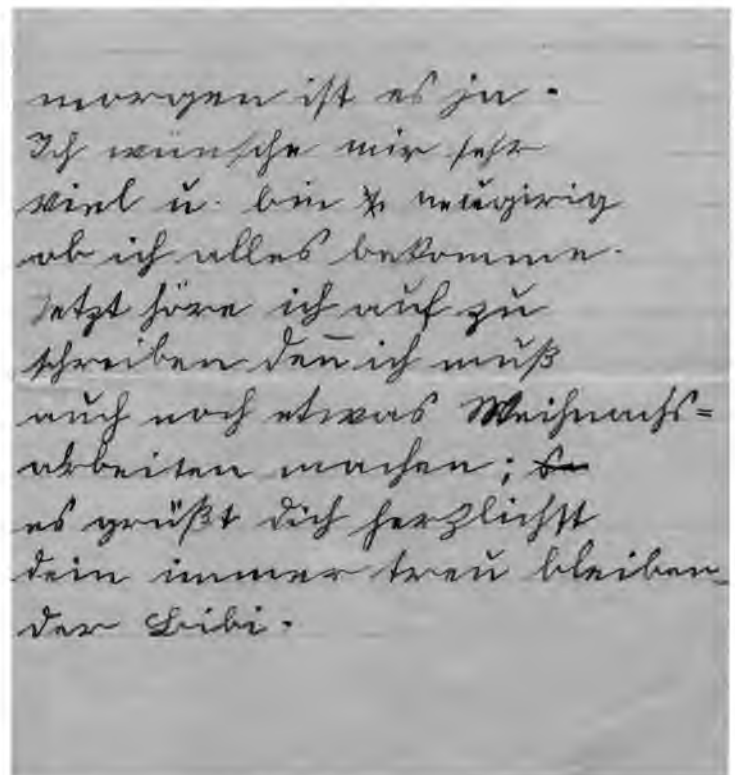 morgen ist es ja.
Ich wünsche mir sehr
viel u. bin neugirig
ob ich alles bekomme.
Jetzt höre ich auf zu
schreiben den̄ ich muß
auch noch etwas Weihnachs=
arbeiten machen;
es grüßt dich herzlichst
dein immer treu bleiben
der Bibi.